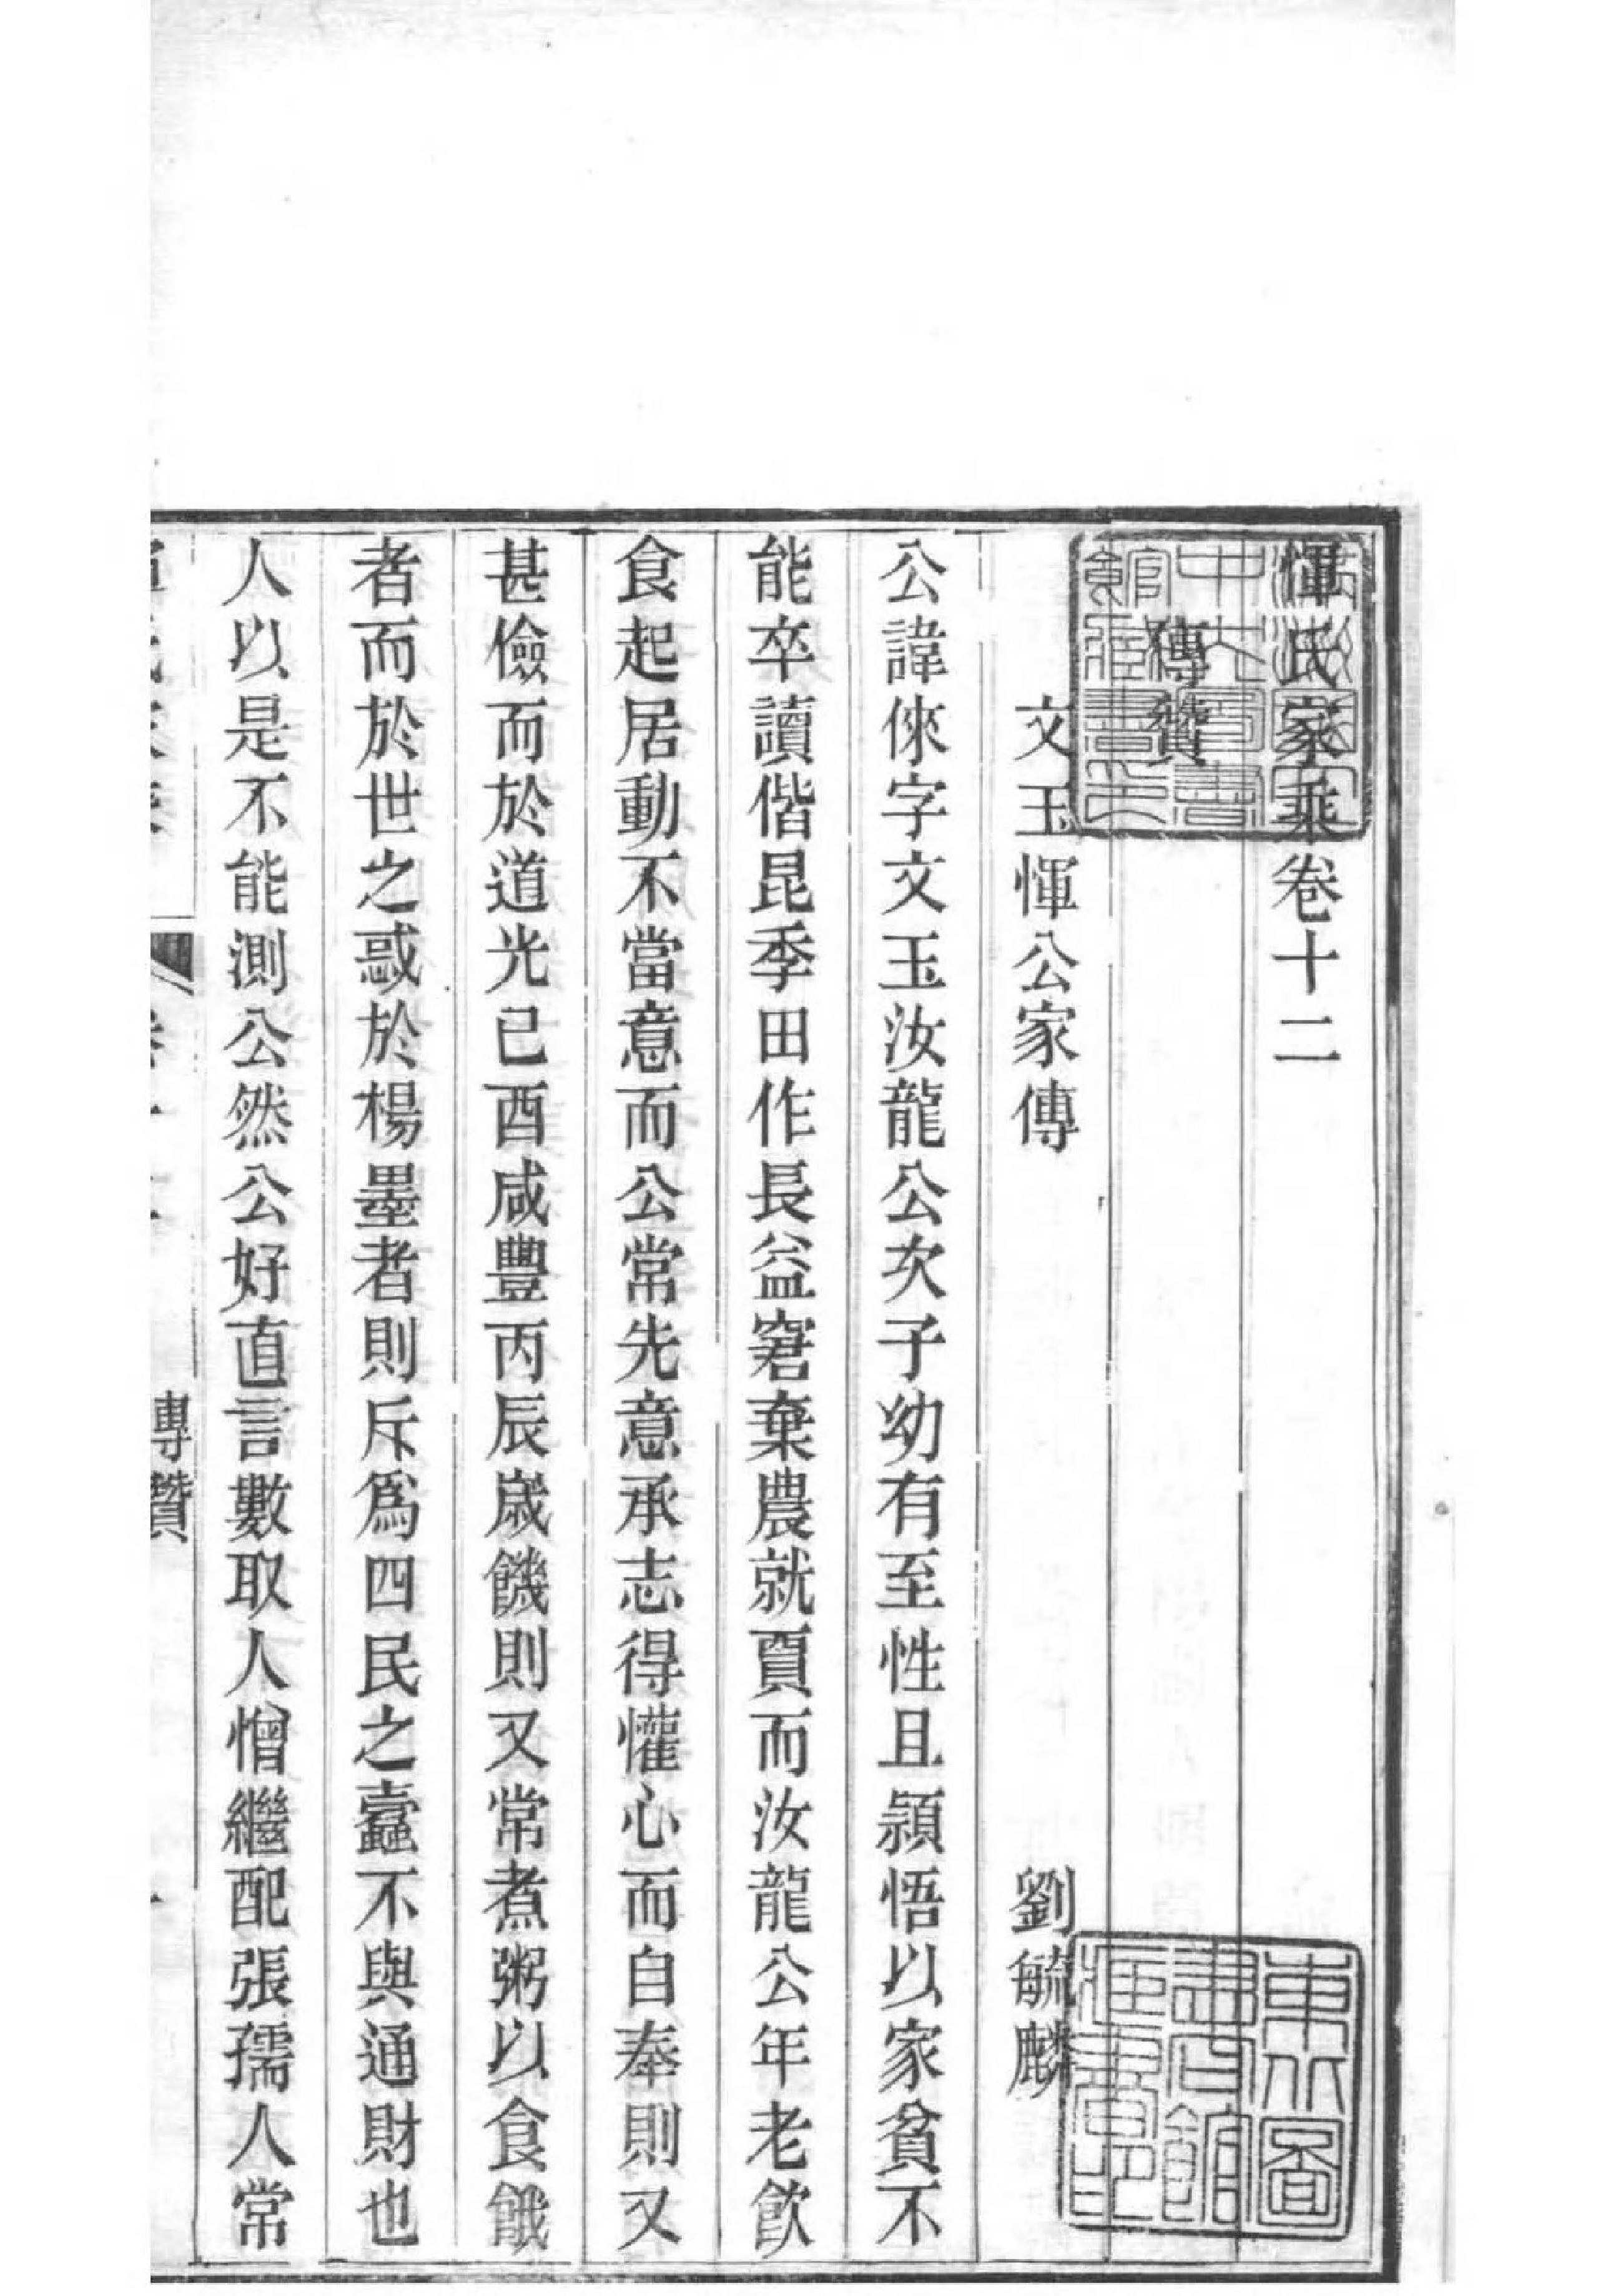 惲氏家乘卷十二
傳贊
文玉惲公家傳 劉毓麟
公諱倈字文玉汝龍公次子幼有至性且頴悟以家貧不
能卒讀偕昆季田作長益窘棄農就賈而汝龍公年老飲
食起居動不當意而公常先意承志得懽心而自奉則又
甚儉而於道光己酉咸豐丙辰歲饑則又常煮粥以食餓
者而於世之惑於楊墨者則斥爲四民之蠹不與通財也
人以是不能測公然公好直言數取人憎繼配張孺人常
傳贊